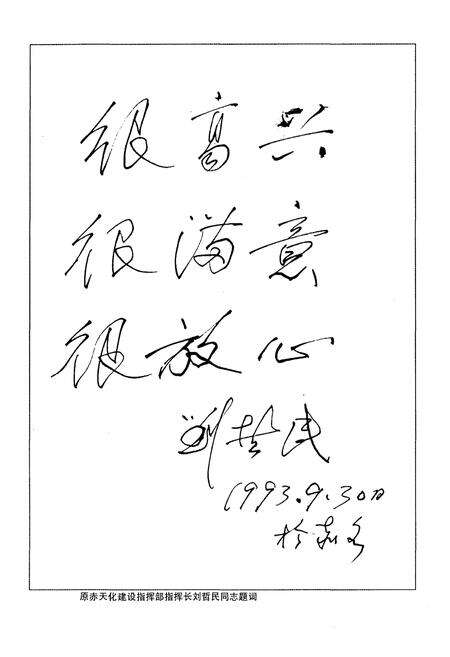 很高兴
很满意
很放心
刘哲民
1993.9.30日
于赤水
原赤天化建设指挥部指挥长刘哲民同志题词